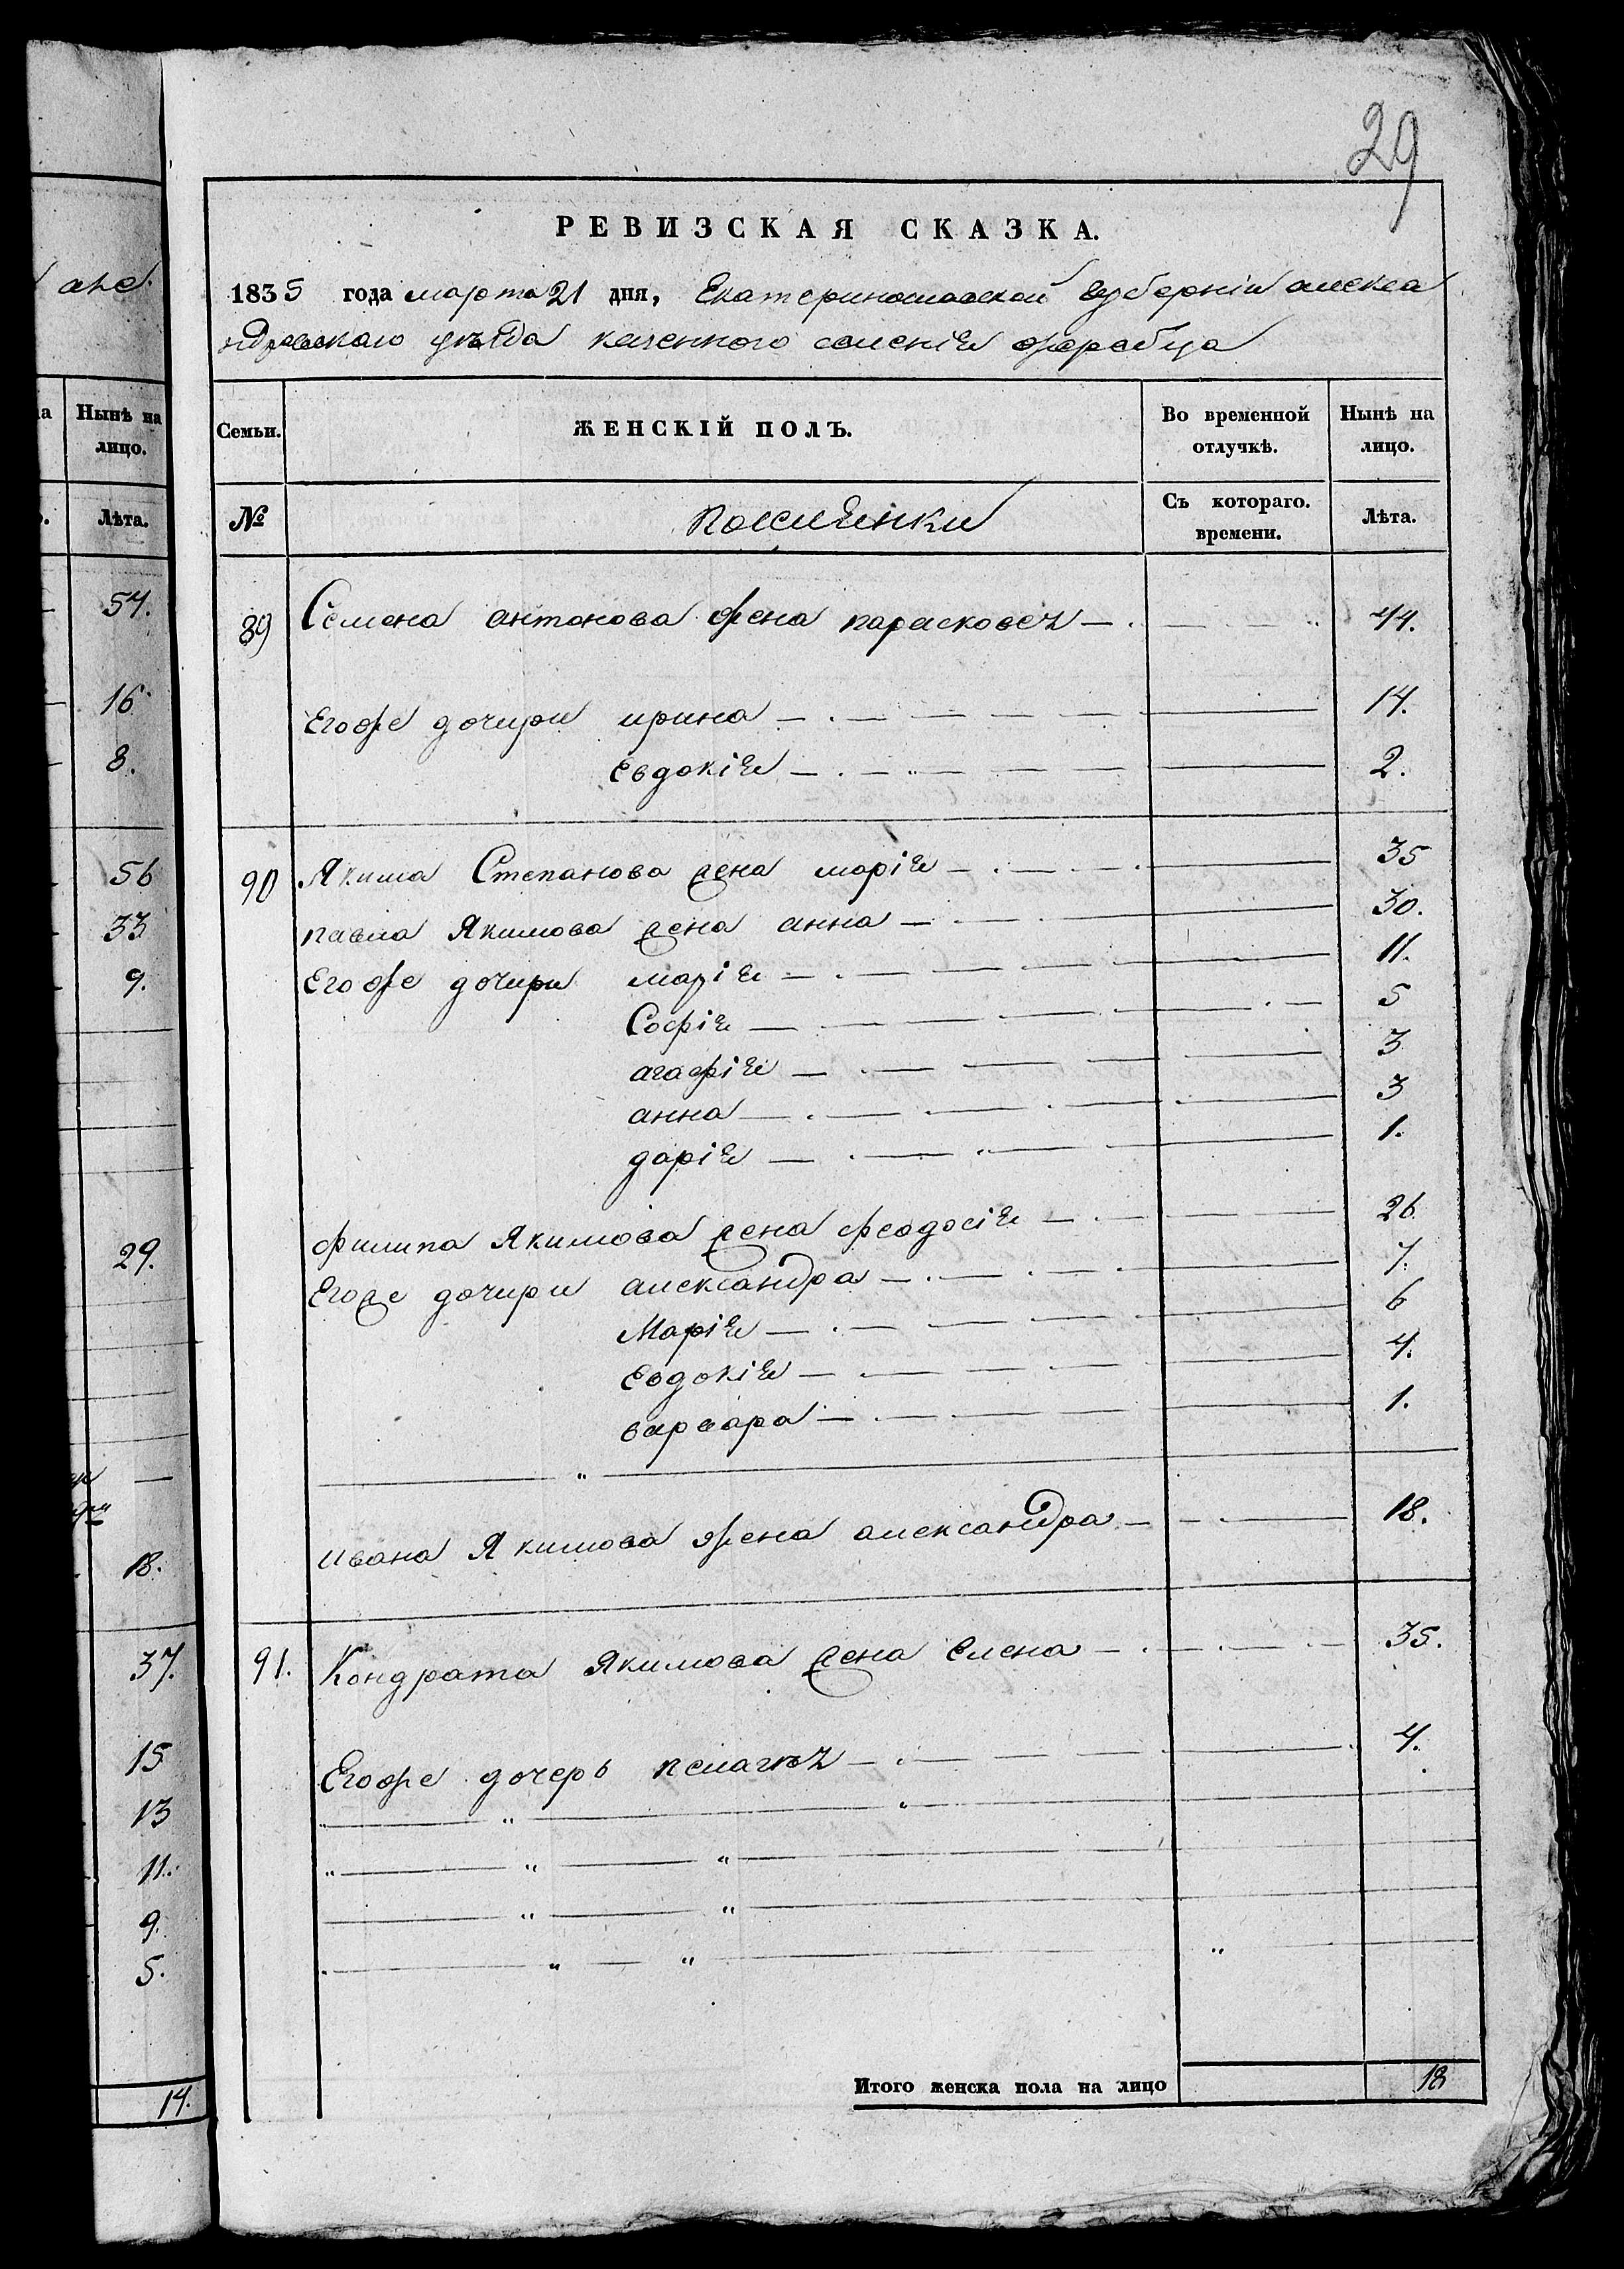 29
РЕВИЗСКАЯ СКАЗКА.
1835 года марта 21 дня, Екатеринославской губерніи алекса
ндровского уѣзда казенного селенія жеребца
Семьи. ЖЕНСКІЙ ПОЛЪ. Во временной отлучкѣ. Нынѣ на лицо.
№ поселянки Съ котораго. времени. Лѣта.
89 Семена антонова жена парасковея 44.
Егоже дочири ирина 14.
Евдокія 2.
90 Якима Степанова жена марія 35
павла Якимова жена анна 30.
Егоже дочири марія 11.
Софія 5
агафія 3
анна 3
дарія 1.
филипа Якимова жена феодосія 26
Егоже дочири александра 7.
Марія 6
Евдокія 4.
варвара 1.
ивана Якимова жена александра 18.
91. Кондрата Якимова жена Елена 35.
Егоже дочерь пелагѣя 4.
Итого женска пола на лицо 18
Нынѣ на
лицо.
Лѣта.
57.
16
8.
56
33
9.
29.
18.
37.
15
13
11.
9.
5.
14.